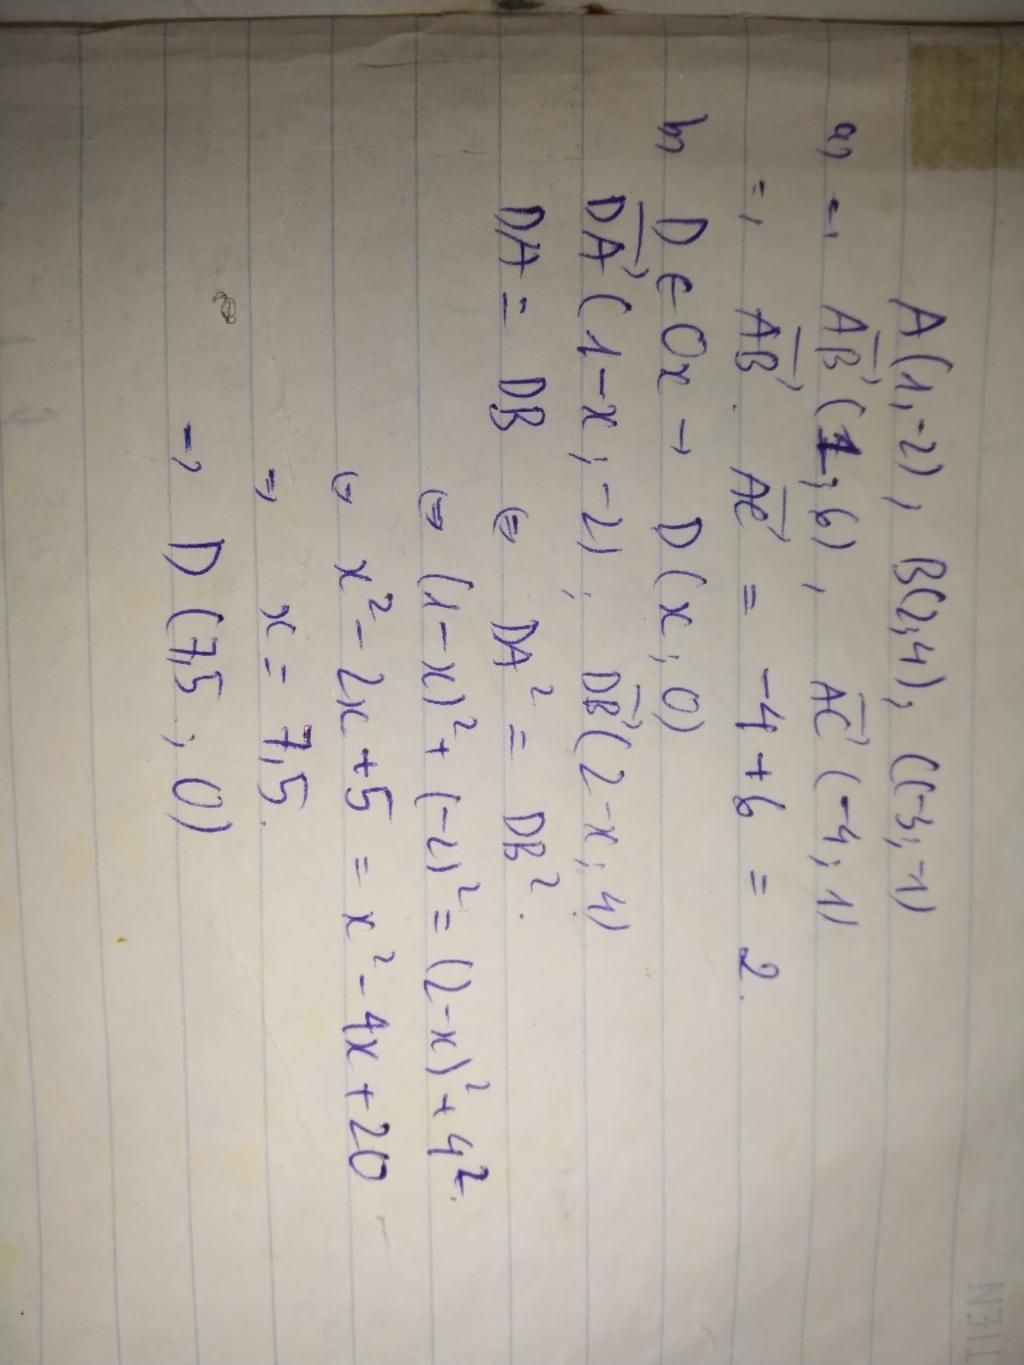 A(1,-2), B(2,4), C(-3;-1)
a, ⇒ AB→(1;6), AC→(-4;1)
⇒ AB→. AC→ = -4+6 = 2.
b, D ∈ Ox → D(x;0)
DA→(1-x;-2), DB→(2-x;4)
DA = DB ⇔ DA² = DB².
⇔ (1-x)² + (-2)² = (2-x)² + 4².
⇔ x² - 2x + 5 = x² - 4x + 20
⇒ x = 7,5.
⇒ D(7,5;0)
TIEN